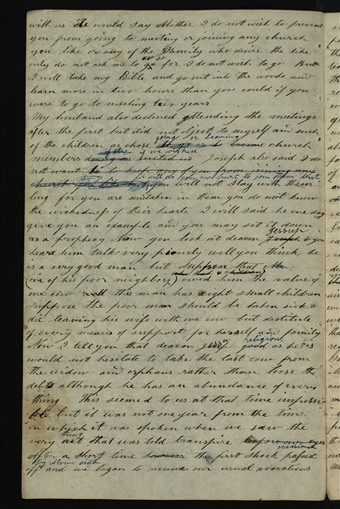 with us He would say Mother I do not wish to prevent
you from going to meeting or joining any church
you like or any of the Family who desire the like
only do not ask me to go for I do not wish to go But
I will take my Bible and go out into the woods and
learn more in two hours than you could if you
were to go to meeting two years
My husband also declined attending the meetings
after the first but did not object to myself and such
of the children as chose going or becoming church
members if we wished Joseph also said I do
not want to keep
church you will not stay with them
long for you are mistaken in them you do not know
the wickedness of their hearts I will said he one day
give you an example and you may set it down
as a prophecy Now you look at deacon Jessup you
hear him talk very piously well you think he
is a very good man but suppose that
one of his poor neighbors owed him the value of
one cow this man has eight small children
suppose the poor man should be taken sick &
die leaving his wife with one cow but destitute
of every means of support for herself and family
Now I tell you that deacon Jessup religious as he is
would not hesitate to take the last cow from
the widow and orphans rather than loose the
debt although he has an abundance of every
thing This seemed to us at that time impossi-
ble but it was not one year from the time
in which it was spoken when we saw the
very thing that was told transpire before our eyes
after a short time the first shock passed
off and we began to resume our usual avocations